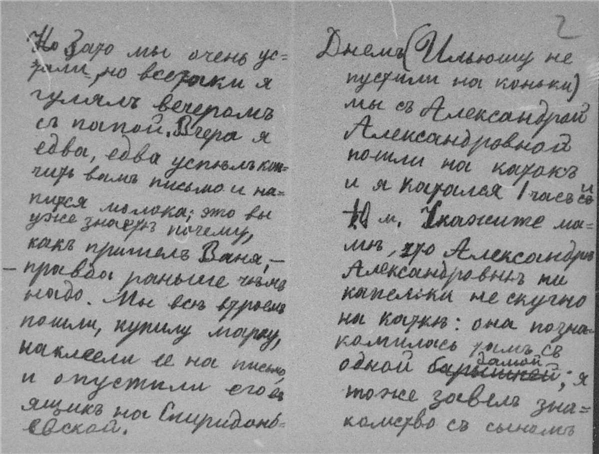 Но Зато мы очень ус-
тали, но всетаки я
гулялъ вечеромъ
съ папой. Вчера я
едва, едва успѣлъ кон-
чить вамъ письмо и на-
пился молока; это вы
уже знаете почему,
какъ пришелъ Ваня, —
— правда раньше чѣмъ
надо. Мы всѣ втроемъ
пошли, купилу марку,
наклеели ее на письмо,
и опустили его въ
ящикъ на Спиридонь-
евской.
2
Днемъ (Ильюшу не
пустили на коньки)
мы съ Александрой
Александровной
пошли на катокъ
и я катался 1 часъ и съ
10 м. Скажите ма-
мѣ, что Александрѣ
Александровнѣ ни
капельки не скучно
на каткѣ: она позна-
комилась тамъ съ
одной барышней дамой; я
тоже завелъ зна-
комство съ сыномъ